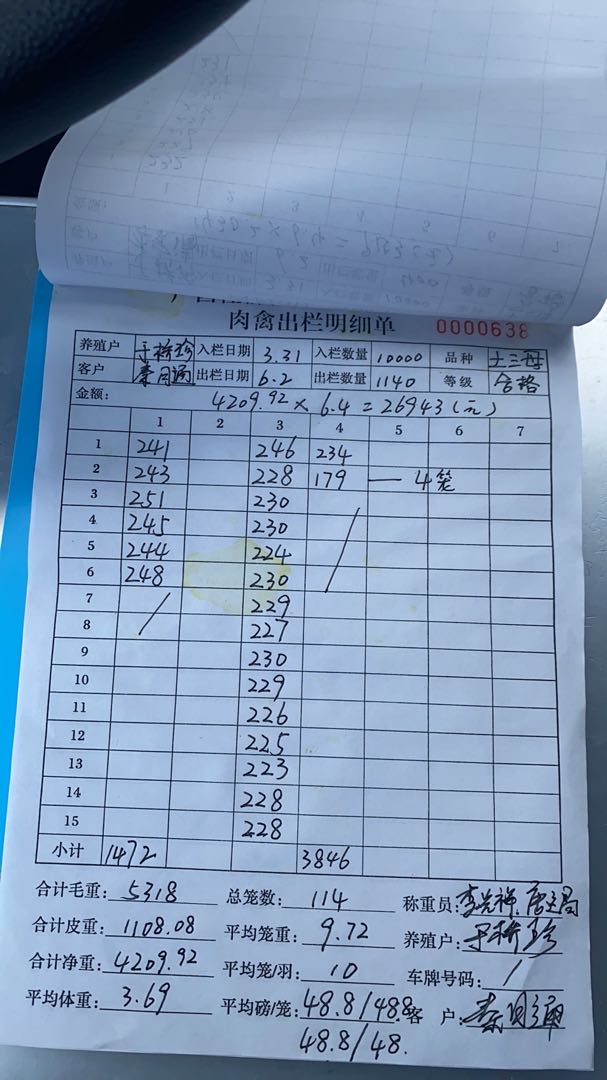 肉禽出栏明细单 0000638
养殖户 入栏日期 3.31 入栏数量 10000 品种 土三母
客户 出栏日期 6.2 出栏数量 1140 等级 合格
金额: 4209.92 × 6.4 = 26943(元)
1 2 3 4 5 6 7
1 241 246 234
2 243 228 179 — 4笼
3 251 230
4 245 230
5 244 224
6 248 230
7 229
8 227
9 230
10 229
11 226
12 225
13 223
14 228
15 228
小计 1472 3846
合计毛重: 5318 总笼数: 114 称重员:
合计皮重: 1108.08 平均笼重: 9.72 养殖户:
合计净重: 4209.92 平均笼/羽: 10 车牌号码: /
平均体重: 3.69 平均磅/笼: 48.8/488 客户:
48.8/48.